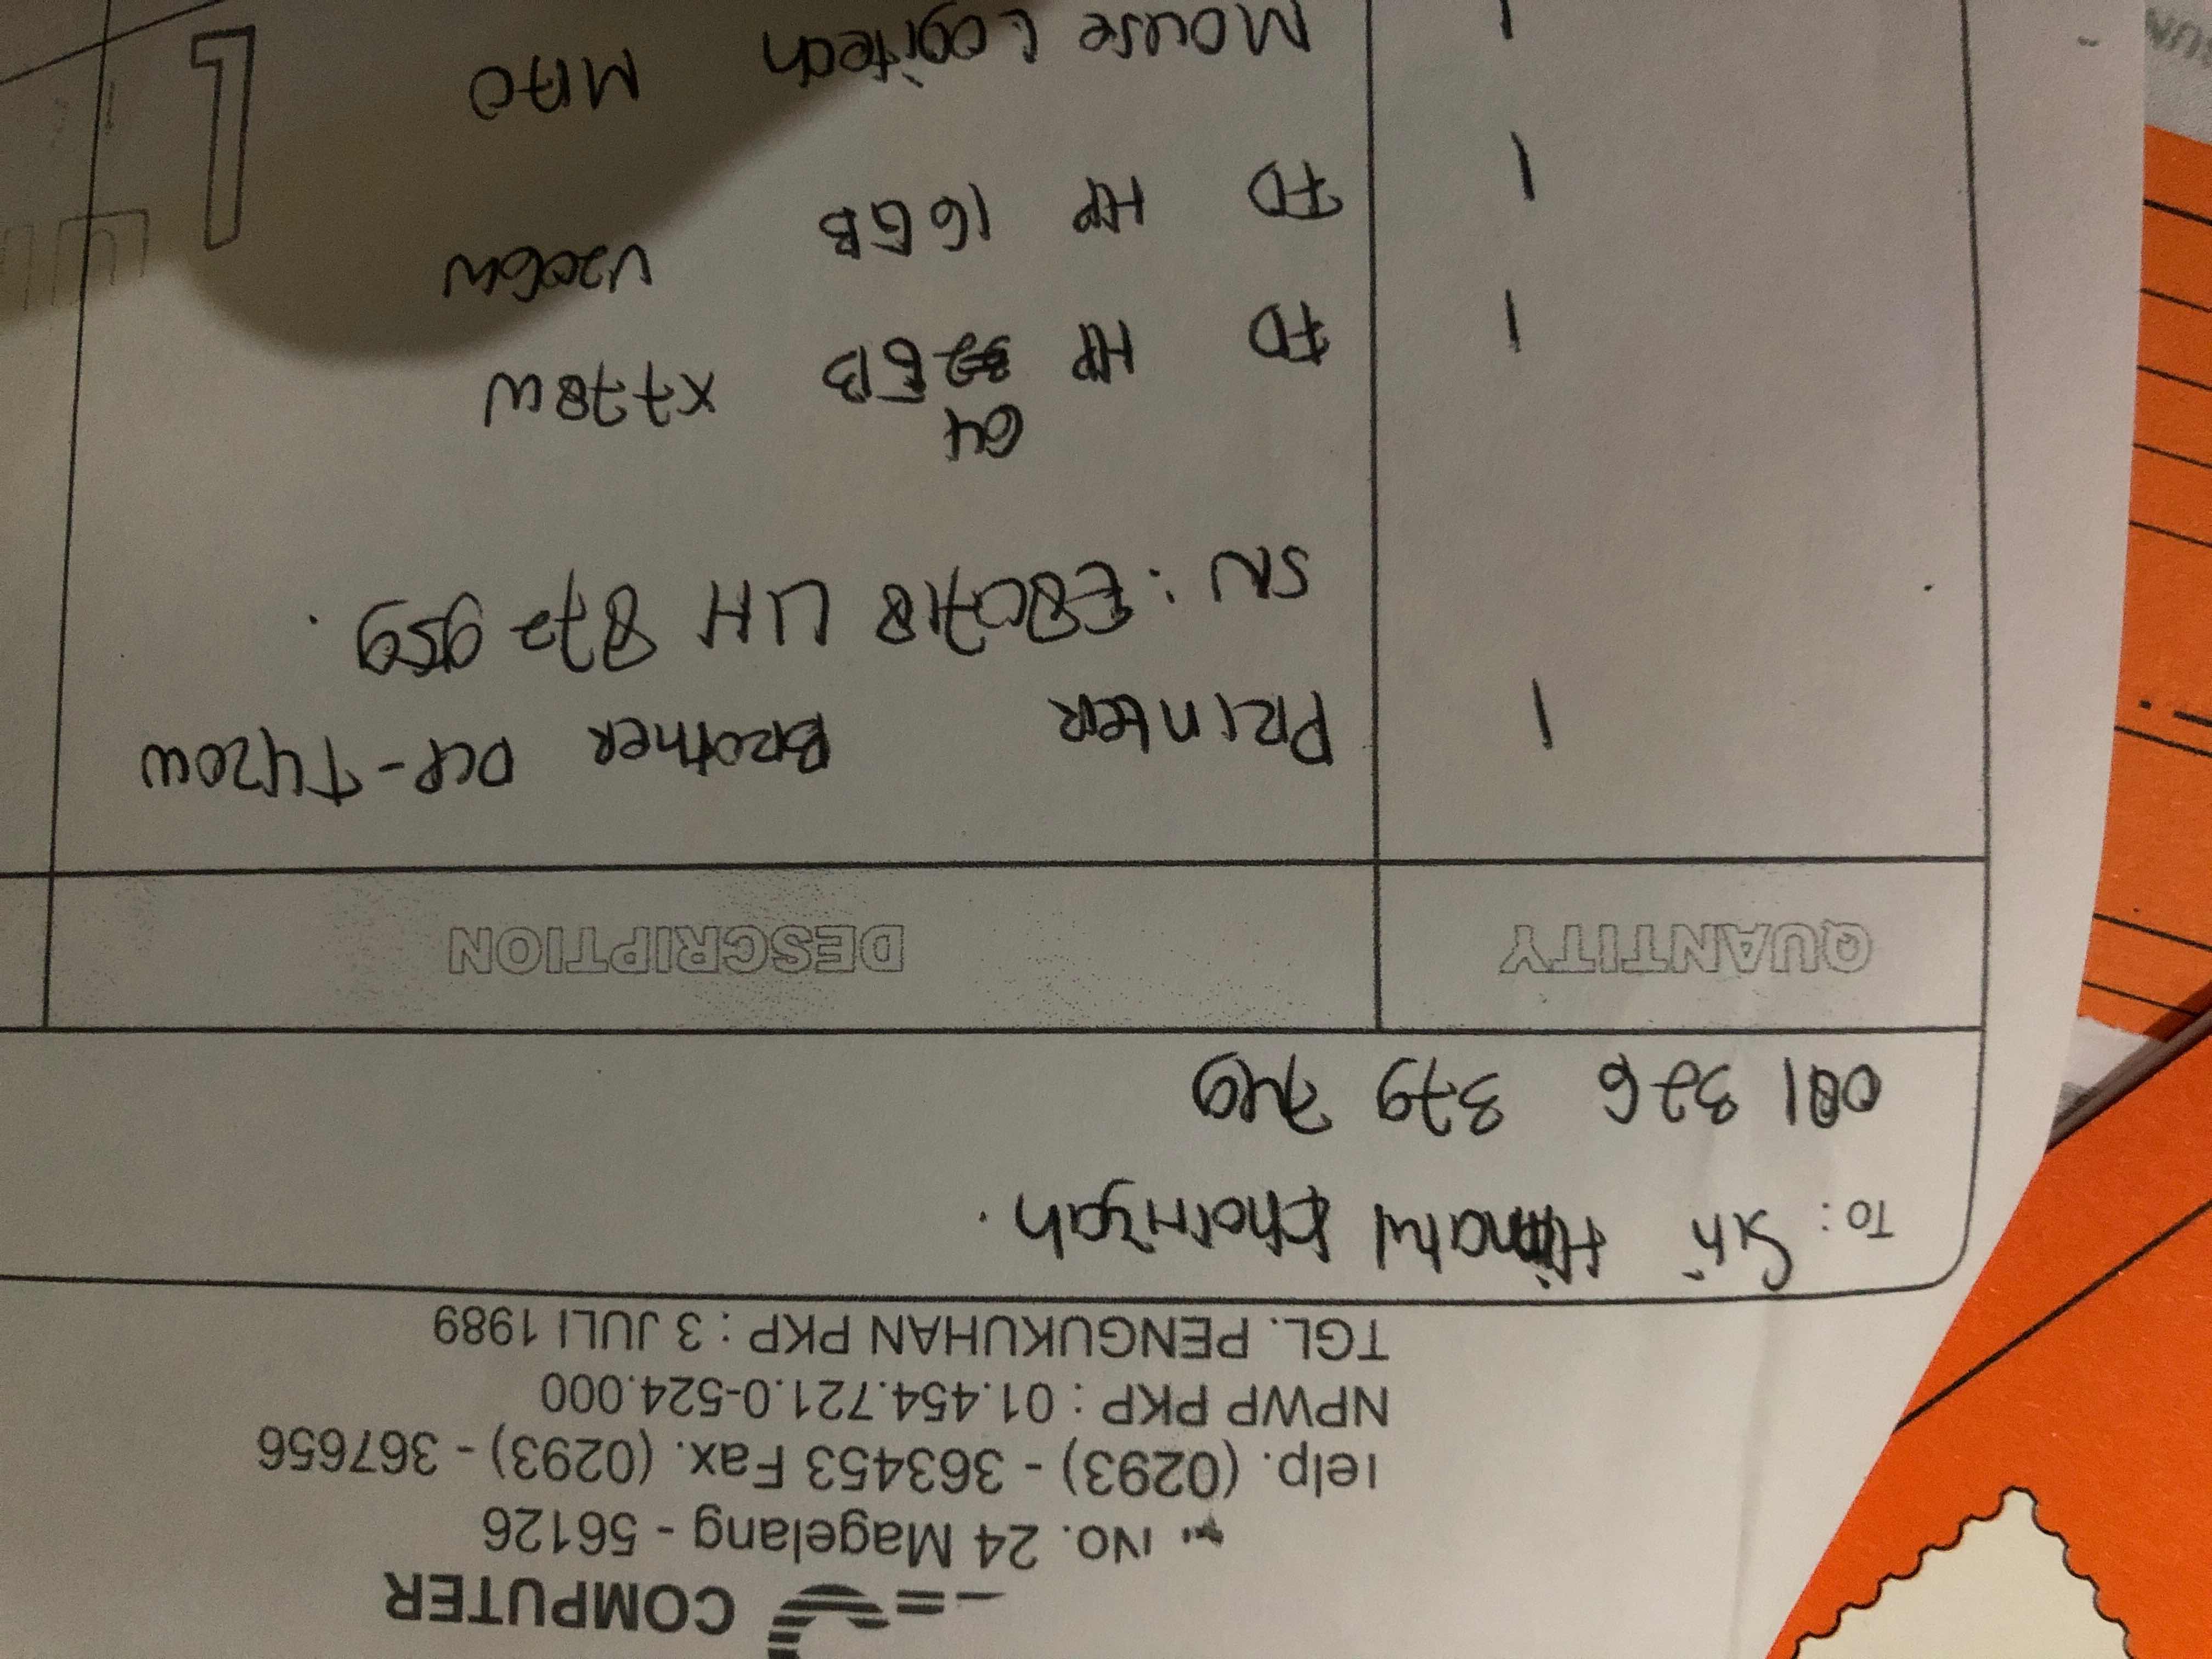 COMPUTER
No. 24 Magelang - 56126
Telp. (0293) - 363453 Fax. (0293) - 367656
NPWP PKP : 01.454.721.0-524.000
TGL. PENGUKUHAN PKP : 3 JULI 1989
TO : Sri Khoiriyah.
081 326 379
QUANTITY DESCRIPTION
1 PRINTER BROTHER DCP-T420W
SN : E80718 L1H 872 959.
64
1 FD HP 32 GB X778W
1 FD HP 16 GB V206W
1 Mouse Logitech M170